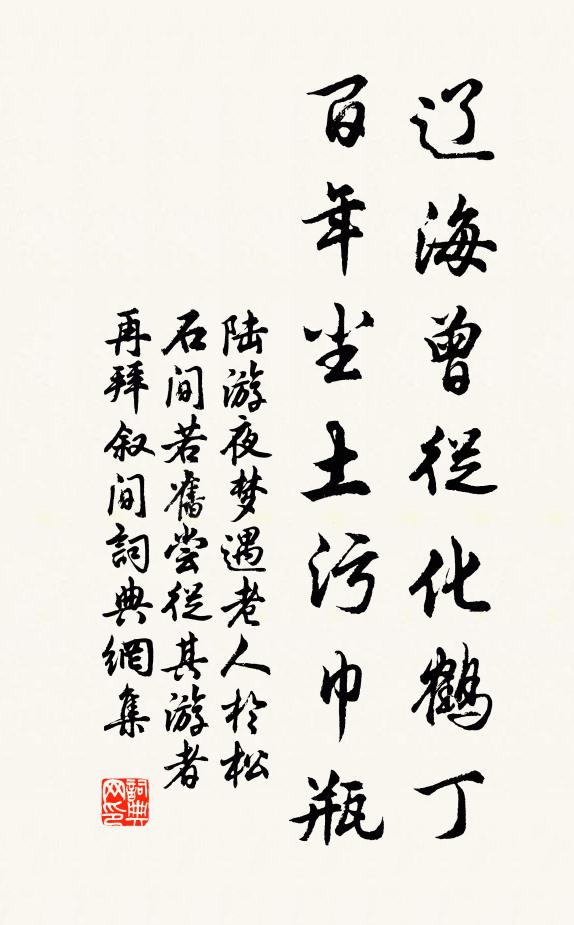 辽海曾從化鶴丁
百年尘土污巾瓶
陆游夜梦遇老人於松
石间若舊尝從其游者
再拜叙间詞典網集
詞典
网印